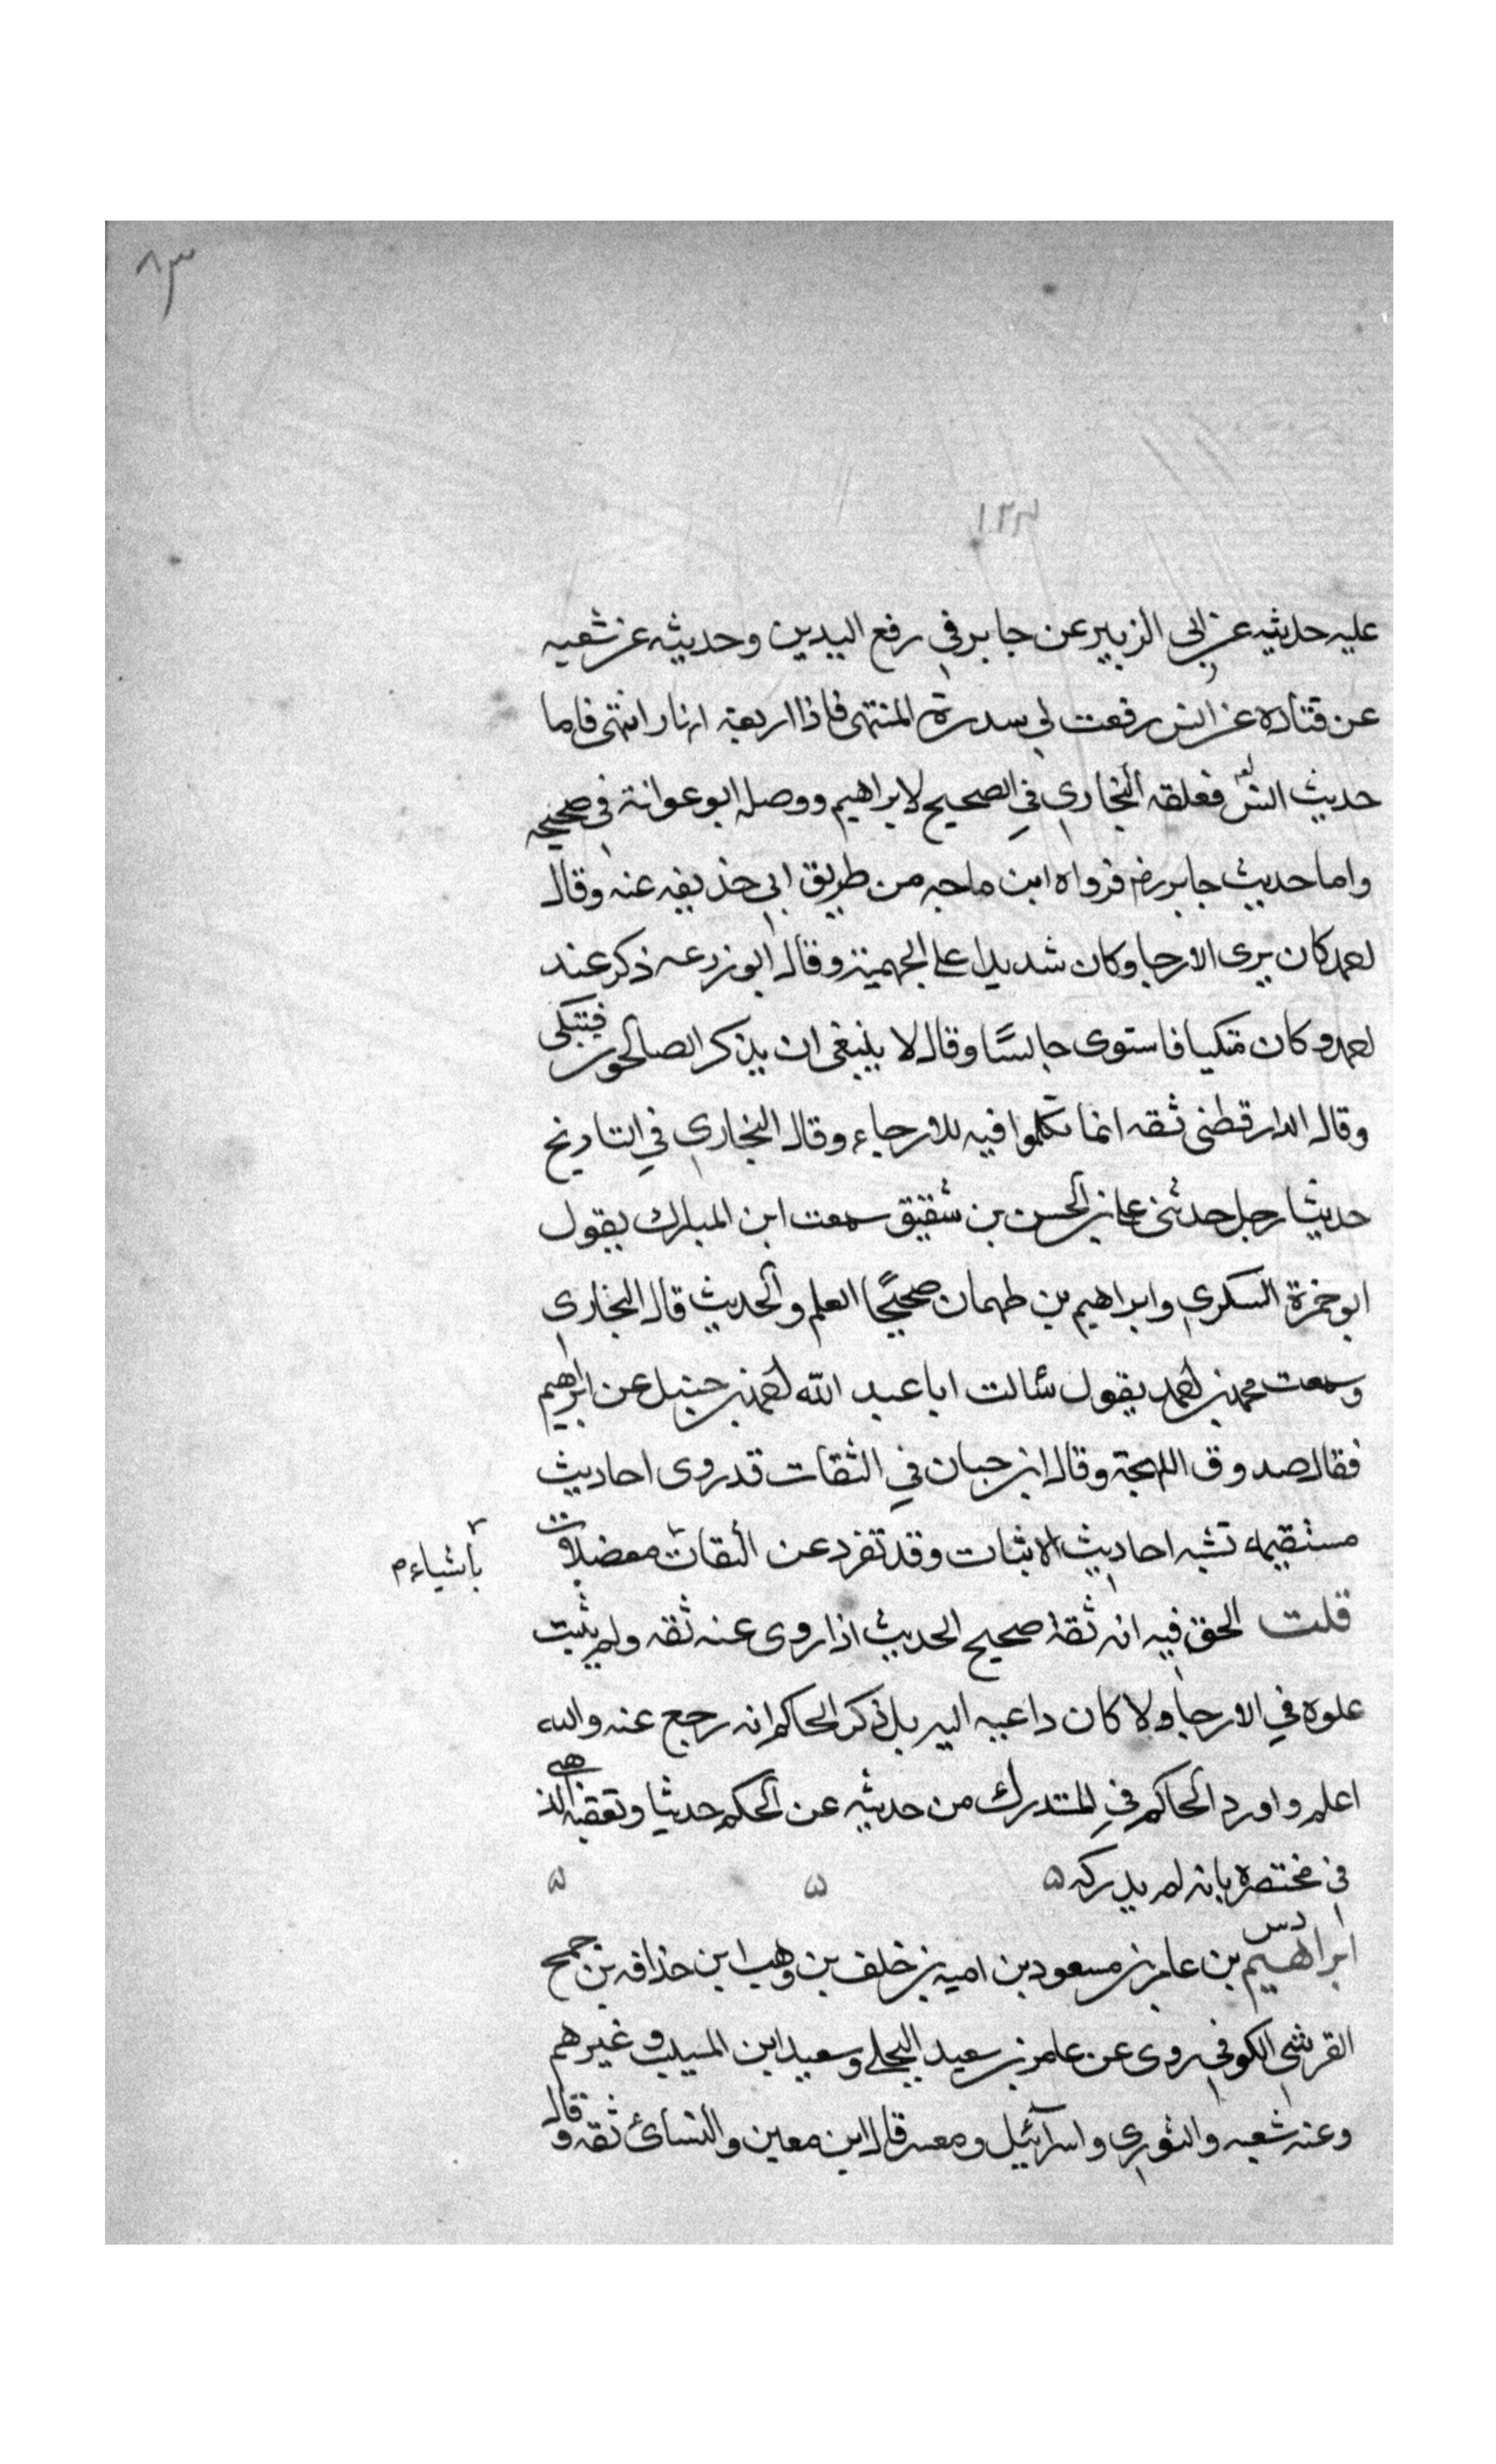 ٨٣
١٢٣
عليه حديثه عن ابى الزبير عن جابر في رفع اليدين وحديثه عن شعبه
عن قتاده عن انس رفعت لي سدرة المنتهى فاذا اربعة انهار انتهى فاما
حديث انس فعلقه البخاري في الصحيح لابراهيم ووصله ابو عوانة في صحيحه
واما حديث جابر رضه فرواه ابن ماجه من طريق ابي حذيفه عنه وقال
احمد كان يرى الارجا وكان شديدا على الجهمية وقال ابو زرعه ذكر عند
احمد وكان متكيا فاستوى جالسًا وقال لا ينبغى ان يذكر الصالحون فيتكى
وقال الدارقطنى ثقه انما تكلموا فيه للارجاء وقال البخاري في التاريخ
حديثا رجل حدثنى على بن الحسن بن شقيق سمعت ابن المبارك يقول
ابو حمزة السكري وابراهيم بن طهمان صحيحًا العلم والحديث قال البخارى
وسمعت محمد بن احمد يقول سألت ابا عبد الله احمد بن حنبل عن ابراهيم
فقال صدوق اللهجة وقال ابن حبان في الثقات قد روى احاديث
مستقيمه تشبه احاديث الاثبات وقد تفرد عن الثقات معضلات
بأشياء م
قلت الحق فيه انه ثقة صحيح الحديث اذا روى عنه ثقه ولم يثبت
علوه في الارجا ولا كان داعيه اليه بل ذكر الحاكم انه رجع عنه والله
اعلم واورد الحاكم في المتدرك من حديثه عن الحكم حديثا وتعقبه الذهبي
في مختصره بانه لم يدركه ۵ ۵ ۵
د س
ابراهيم بن عامر بن مسعود بن اميه بن خلف بن وهب ابن حذافه بن جمح
القرشي الكوفي روى عن عامر بن سعيد البجلي وسعيد ابن المسيب وغيرهم
وعنه شعبه والثوري واسرآئيل ومسعر قال ابن معين والنسائ ثقه وقال